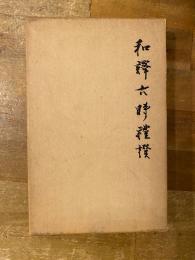 和譯六時禮讃